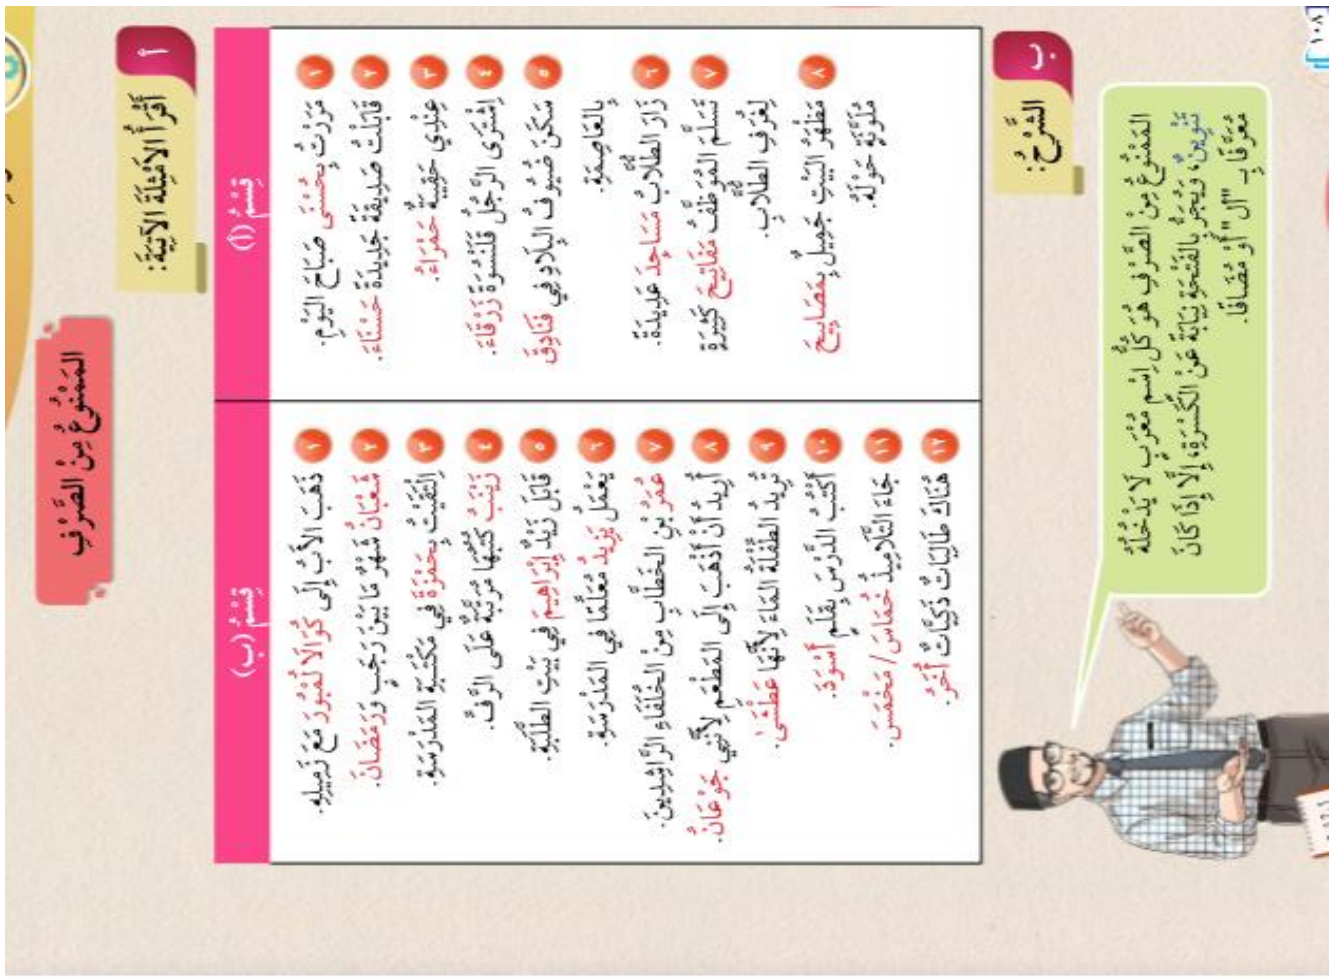 المَمْنُوعُ مِنَ الصَّرْفِ
أ
أَقْرَأُ الأَمْثِلَةَ الآتِيَةَ:
قِسْمُ (أ)
١ مَرَرْتُ بِحُسْنَى صَبَاحَ اليَوْمِ.
٢ قَابَلْتُ صَدِيقَةً جَدِيدَةً حَسْنَاءَ.
٣ عِنْدِي حَقِيبَةٌ حَمْرَاءُ.
٤ اِشْتَرَى الرَّجُلُ قَلَنْسُوَةً زَرْقَاءَ.
٥ سَكَنَ ضُيُوفُ البِلَادِ فِي فَنَادِقَ
بِالعَاصِمَةِ.
٦ زَارَ الطُّلَّابُ مَسَاجِدَ عَدِيدَةً.
٧ تَسَلَّمَ المُوَظَّفُ مَفَاتِيحَ كَثِيرَةً
لِغُرَفِ الطُّلَّابِ.
٨ مَظْهَرُ البَيْتِ جَمِيلٌ بِمَصَابِيحَ
مُلَوَّنَةٍ حَوْلَهُ.
قِسْمُ (ب)
١ ذَهَبَ الأَبُ إِلَى كُوَالَا لُمْبُورَ مَعَ زَمِيلِهِ.
٢ شَعْبَانُ شَهْرٌ مَا بَيْنَ رَجَبٍ وَرَمَضَانَ.
٣ اِلْتَقَيْتُ بِحَمْزَةَ فِي مَكْتَبَةِ المَدْرَسَةِ.
٤ زَيْنَبُ كُتُبُهَا مُرَتَّبَةٌ عَلَى الرَّفِّ.
٥ قَابَلَ زَيْدٌ إِبْرَاهِيمَ فِي بَيْتِ الطَّلَبَةِ.
٦ يَعْمَلُ يَزِيدُ مُعَلِّمًا فِي المَدْرَسَةِ.
٧ عُمَرُ بْنِ الخَطَّابِ مِنَ الخُلَفَاءِ الرَّاشِدِينَ.
٨ أُرِيدُ أَنْ أَذْهَبَ إِلَى المَطْعَمِ لِأَنَّنِي جَوْعَانُ.
٩ تُرِيدُ الطِّفْلَةُ المَاءَ لِأَنَّهَا عَطْشَى.
١٠ أَكْتُبُ الدَّرْسَ بِقَلَمٍ أَسْوَدَ.
١١ جَاءَ التَّلَامِيذُ خُمَاسَ/ مَخْمَسَ.
١٢ هُنَاكَ طَالِبَاتٌ ذَكِيَّاتٌ أُخَرُ.
ب
الشَّرْحُ:
المَمْنُوعُ مِنَ الصَّرْفِ هُوَ كُلُّ اِسْمٍ مُعْرَبٍ لَا يَدْخُلُهُ
تَنْوِينٌ، وَيُجَرُّ بِالفَتْحَةِ نِيَابَةً عَنِ الكَسْرَةِ، إِلَّا إِذَا كَانَ
مُعَرَّفًا بِـ "ال" أَوْ مُضَافًا.
١٠٨